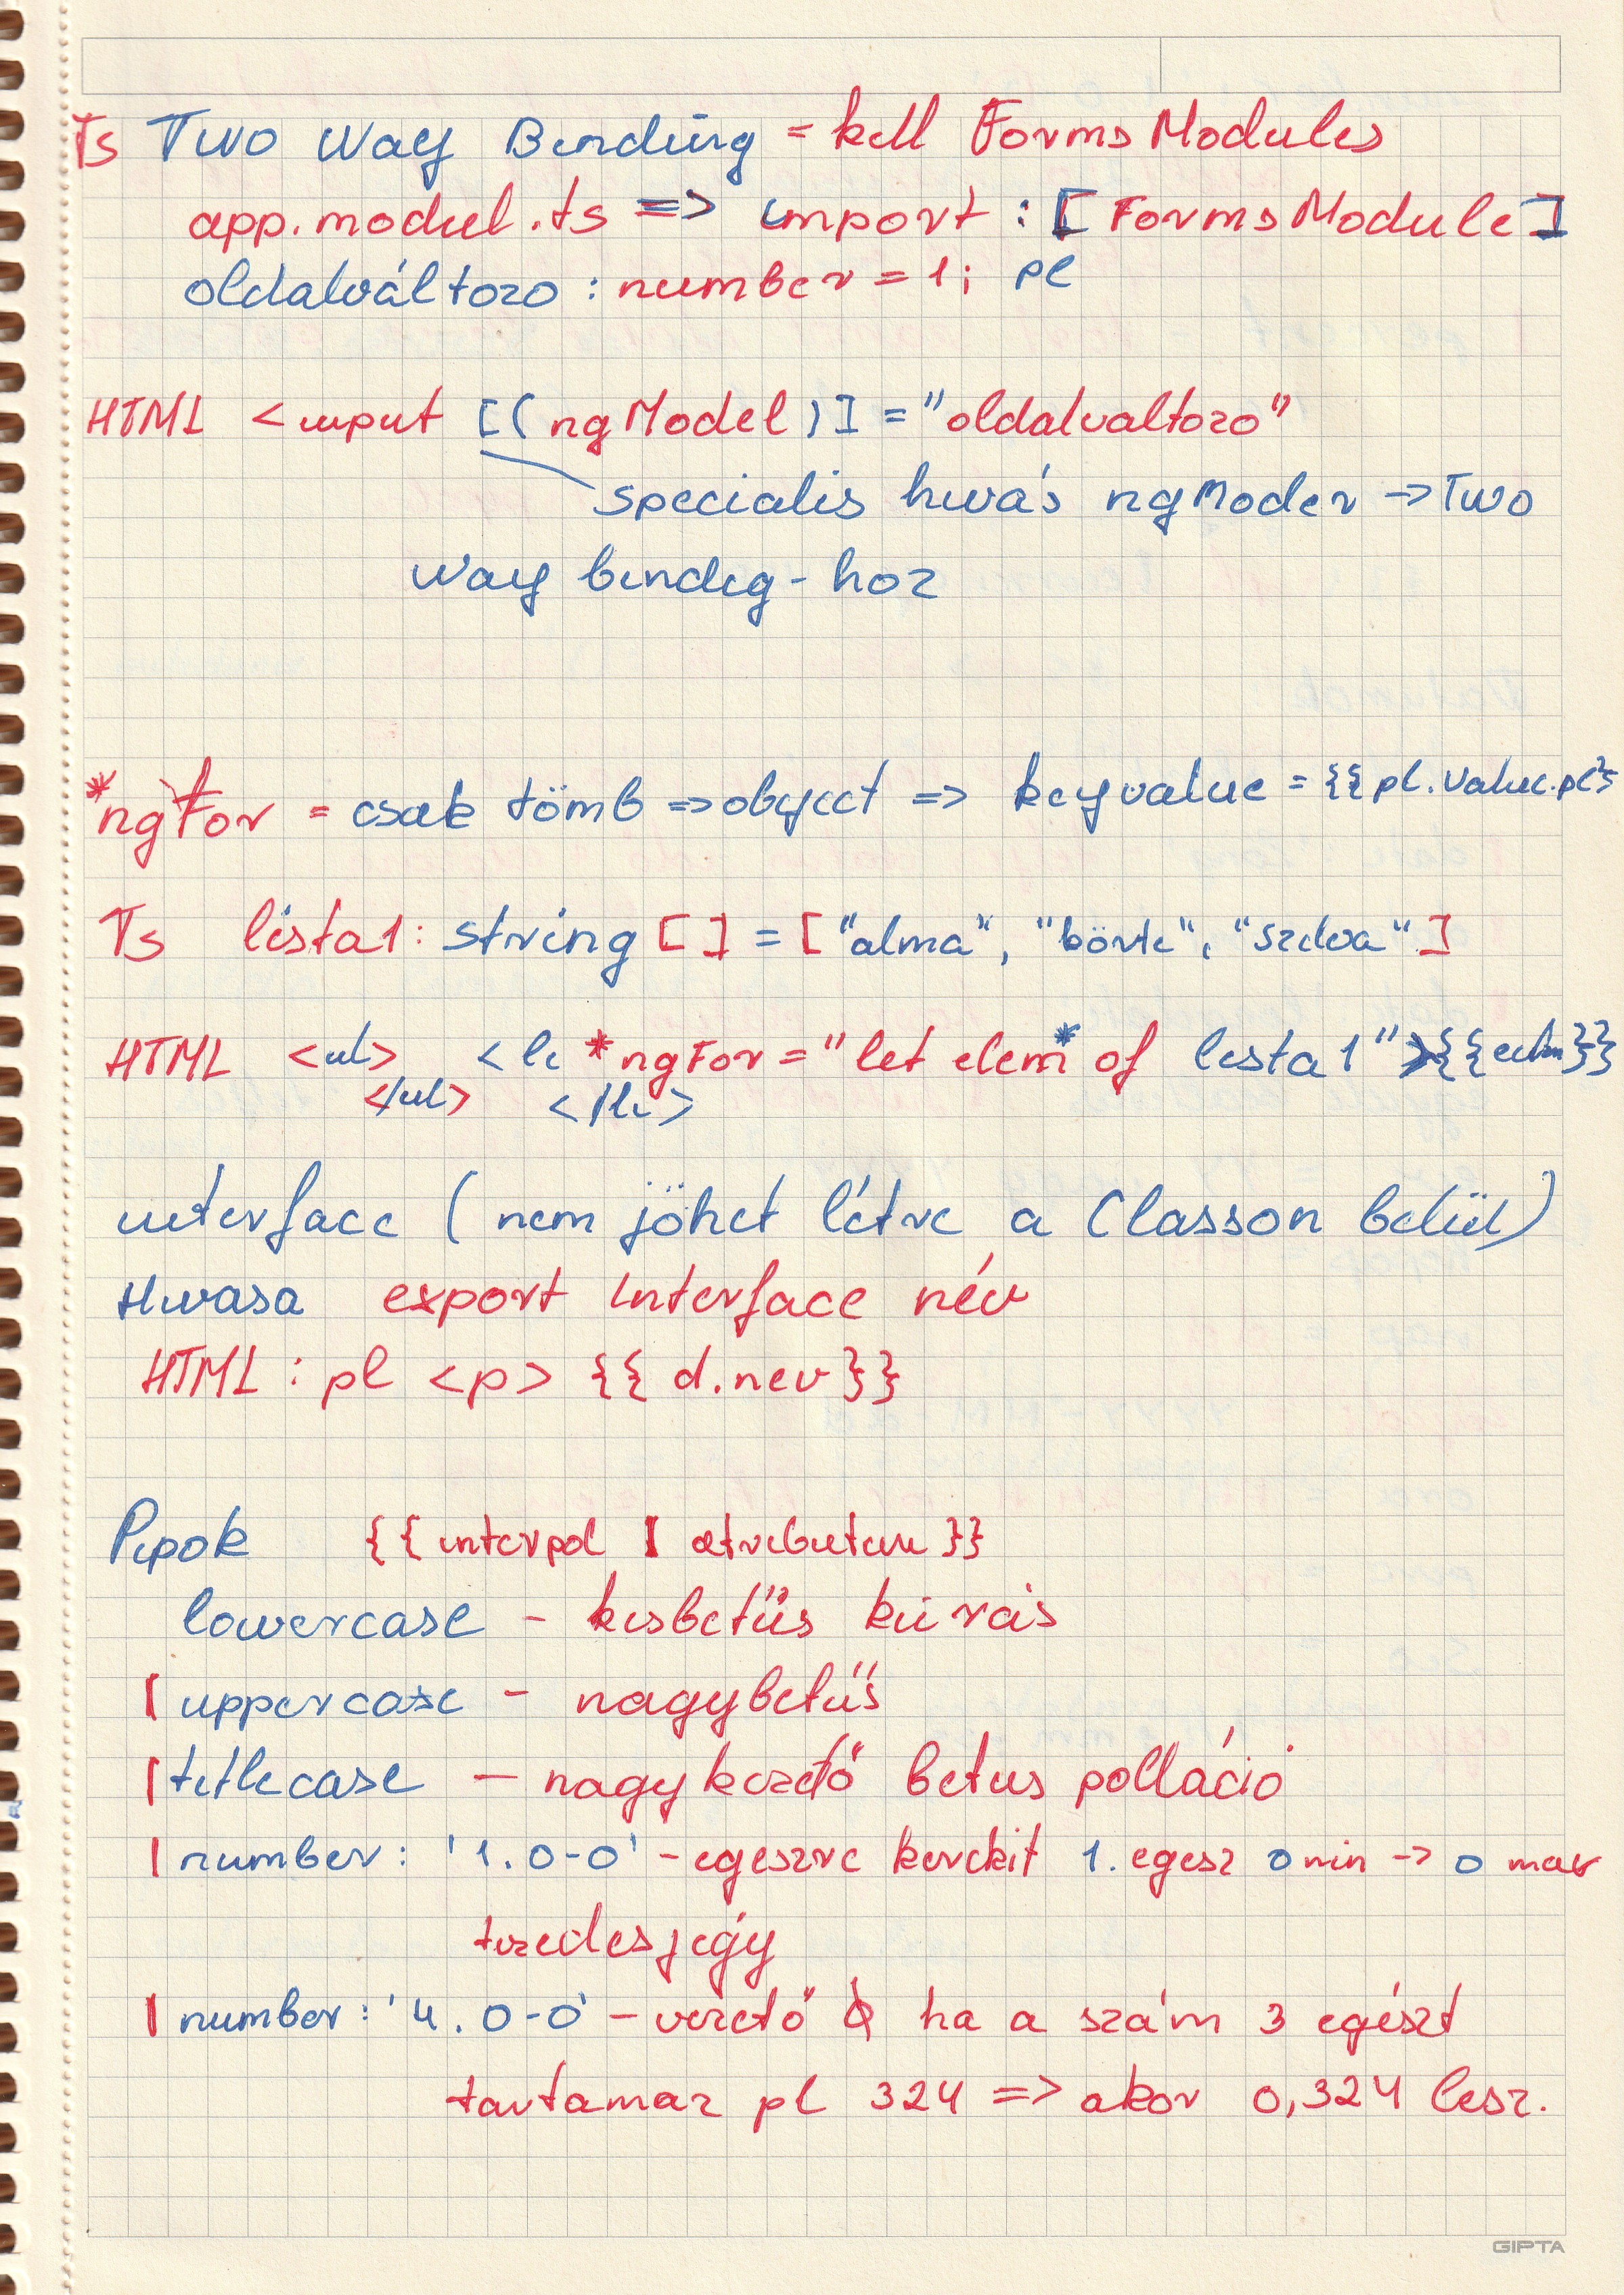 Ts Two Way Binding = kell FormsModules
app.modul.ts => import : [FormsModule]
oldalváltozo : number = 1; pl
HTML <input [(ngModel)] = "oldalvaltozo"
specialis hivás ngModer -> Two
Way bindig - hoz
*ngFor = csak tömb => object => keyvalue = {{pl.value.pl}}
Ts lista1: string [] = ["alma", "körte", "szilva"]
HTML <ul> <li *ngFor = "let elem* of lista1" > {{elem}}
</ul> </li>
interface ( nem jöhet létre a Classon belül)
Hivasa export Interface név
HTML : pl <p> {{ d.nev }}
Pipok {{ interpol | atributum }}
lowercase - kisbetűs kiirás
| uppercase - nagybetűs
| titlecase - nagy kezdő betus polláció
| number: '1.0-0' - egeszre kerekit 1. egesz 0 min -> 0 max
tizedesjegy
| number: '4.0-0' - vezető 0 ha a szám 3 egészt
tartamaz pl 324 => akor 0,324 lesz.
GIPTA